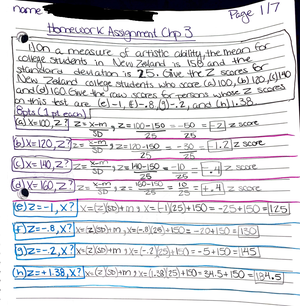 name
Page 1/7
Homework Assignment Chp 3
1) On a measure of artistic ability, the mean for
college students in New Zealand is 150 and the
standard deviation is 25. Give the Z scores for
New Zealand college students who score (a) 100, (b) 120, (c) 140
and (d) 160. Give the raw scores for persons whose Z scores
on this test are (e) -1, (f) -.8, (g) -.2, and (h) 1.38.
8pts (1 pt each)
(a) X=100, Z? Z= x-m/SD, Z= 100-150/25 = -50/25 = -2 z score
(b) X=120, Z? Z= x-m/SD, Z= 120-150/25 = -30/25 = -1.2 z score
(c) X=140, Z? Z= x-m/SD, Z= 140-150/25 = -10/25 = -.4 z score
(d) X=160, Z? Z= x-m/SD, Z= 160-150/25 = 10/25 = +.4 z score
(e) Z=-1, X? X=(Z)(SD)+m, X=(-1)(25)+150=-25+150=125
(f) Z=-.8, X? X=(Z)(SD)+m, X=(-.8)(25)+150=-20+150=130
(g) Z=-.2, X? X=(Z)(SD)+m, X=(-.2)(25)+150=-5+150=145
(h) Z=+1.38, X? X=(Z)(SD)+m, X=(1.38)(25)+150=34.5+150=184.5